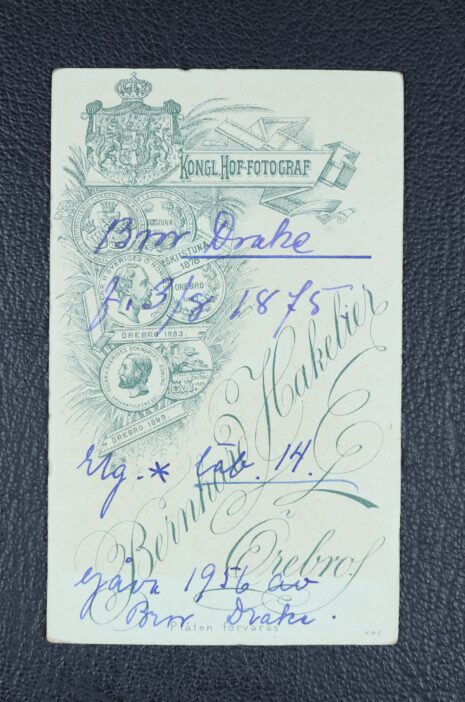 KONGL. HOF-FOTOGRAF
Bror Drake
ESKILSTUNA
1878
ÖREBRO
f. 3/8 1875.
ÖREBRO 1883.
ÖREBRO 1893.
Bernhard Hakelier
Elg. * Löb. 14.
Örebro.
Gåva 1956 av
Bror Drake.
Plåten förvaras